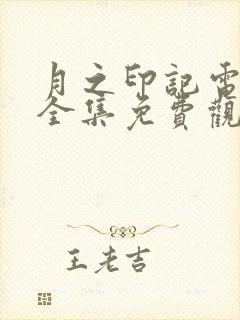 月之印記電
全集免費觀
王老吉